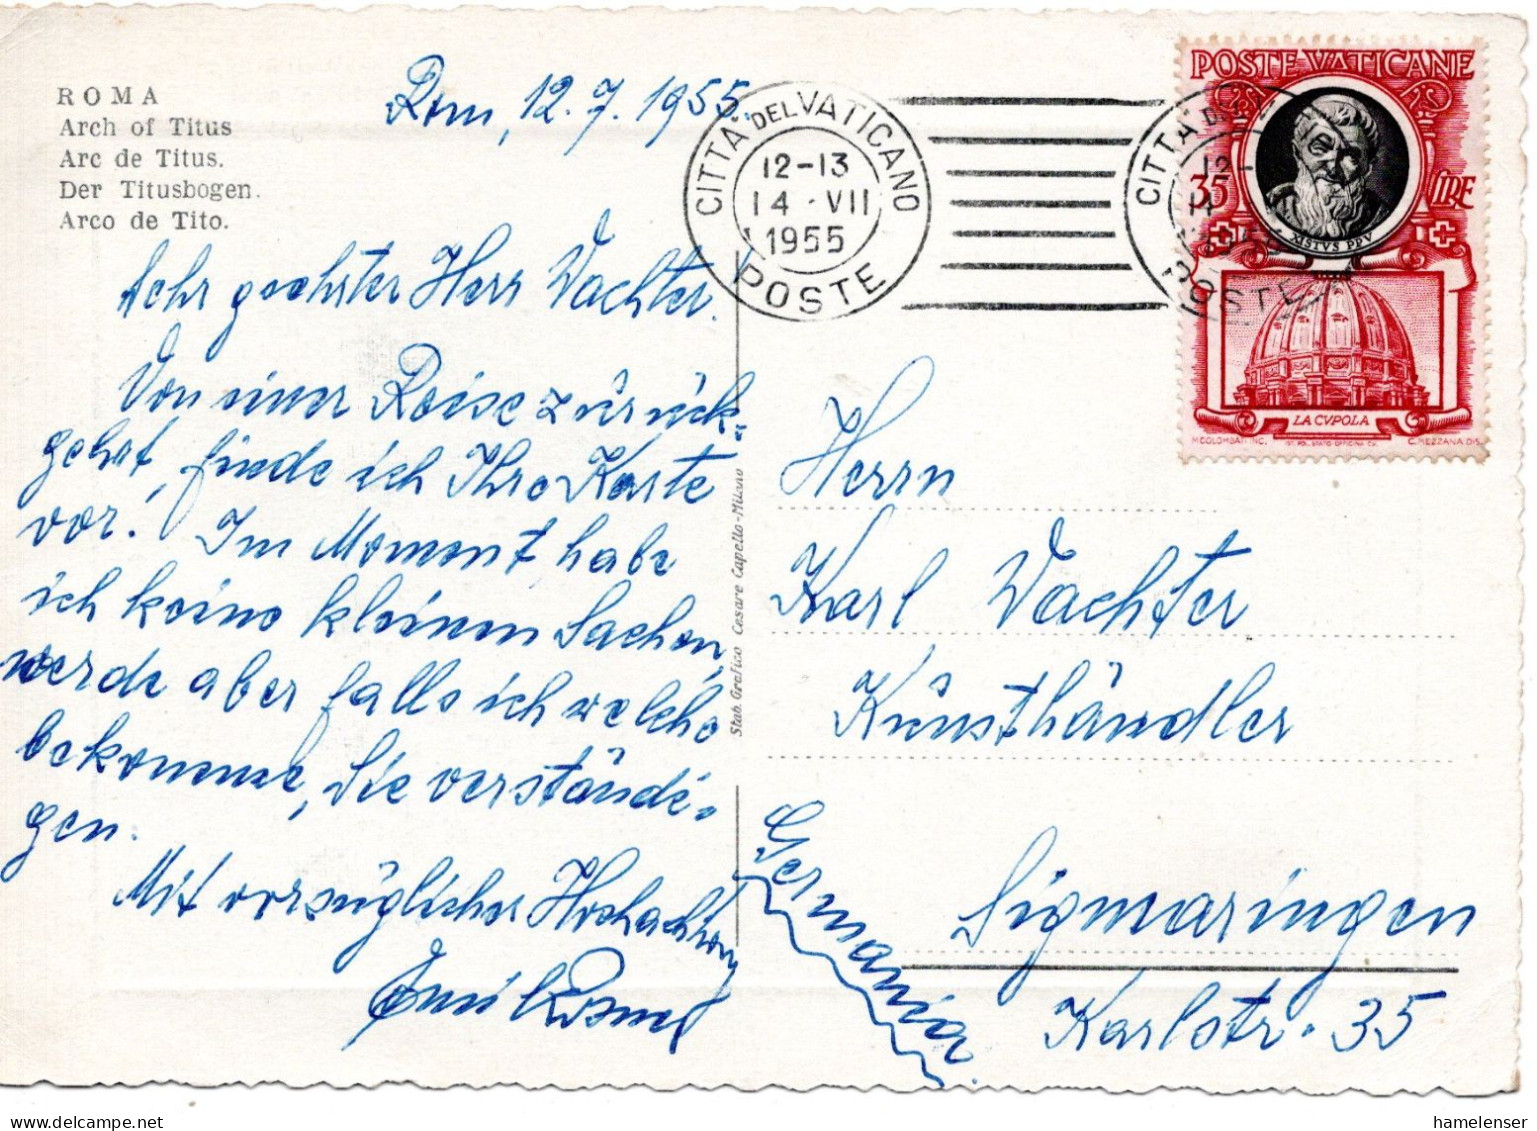 ROMA
Arch of Titus
Arc de Titus.
Der Titusbogen.
Arco de Tito.
Rom, 12.7.1955.
Sehr geehrter Herr Wachter.
Von einer Reise zurück-
gehrt, finde ich Ihre Karte
vor. Im Moment habe
ich keine kleinen Sachen,
werde aber falls ich welche
bekomme, Sie verständi-
gen.
Mit vorzüglicher Hochachtung
Emil
Stab. Grafico Cesare Capello-Milano
CITTÀ DEL VATICANO
12-13
14·VII
1955
POSTE
CITTÀ D
12-
14
POSTE
POSTE VATICANE
35 LIRE
XISTVS PP V
LA CVPOLA
M.COLOMBATI INC. IST. POL. STATO-OFFICINA C.V. C.MEZZANA DIS.
Herrn
Karl Wachter
Kunsthändler
Sigmaringen
Karlstr. 35
Germania
hamelenser